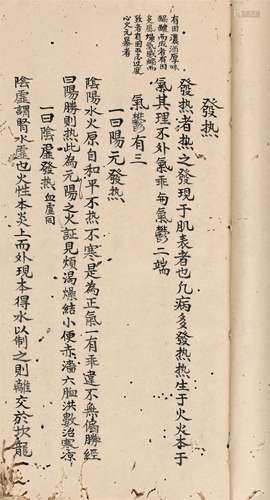 發热
發热者热之發現于肌表者也凡病多發热热生于火火本于
氣其理不外氣乖与氣鬱二端
有因濃酒厚味
醞釀而成者有因
氣鬱有三
一曰陽亢發热
陰陽水火原自和平不热不寒是為正氣一有乖違不無偏勝經
曰陽勝則热此為亢陽之火証見煩渴燥結小便赤濇六脈洪數治宜凉
一曰陰虛發热 血虛同
陰虛謂腎水虛也火性本炎上而外現本得水以制之則離交於坎龍